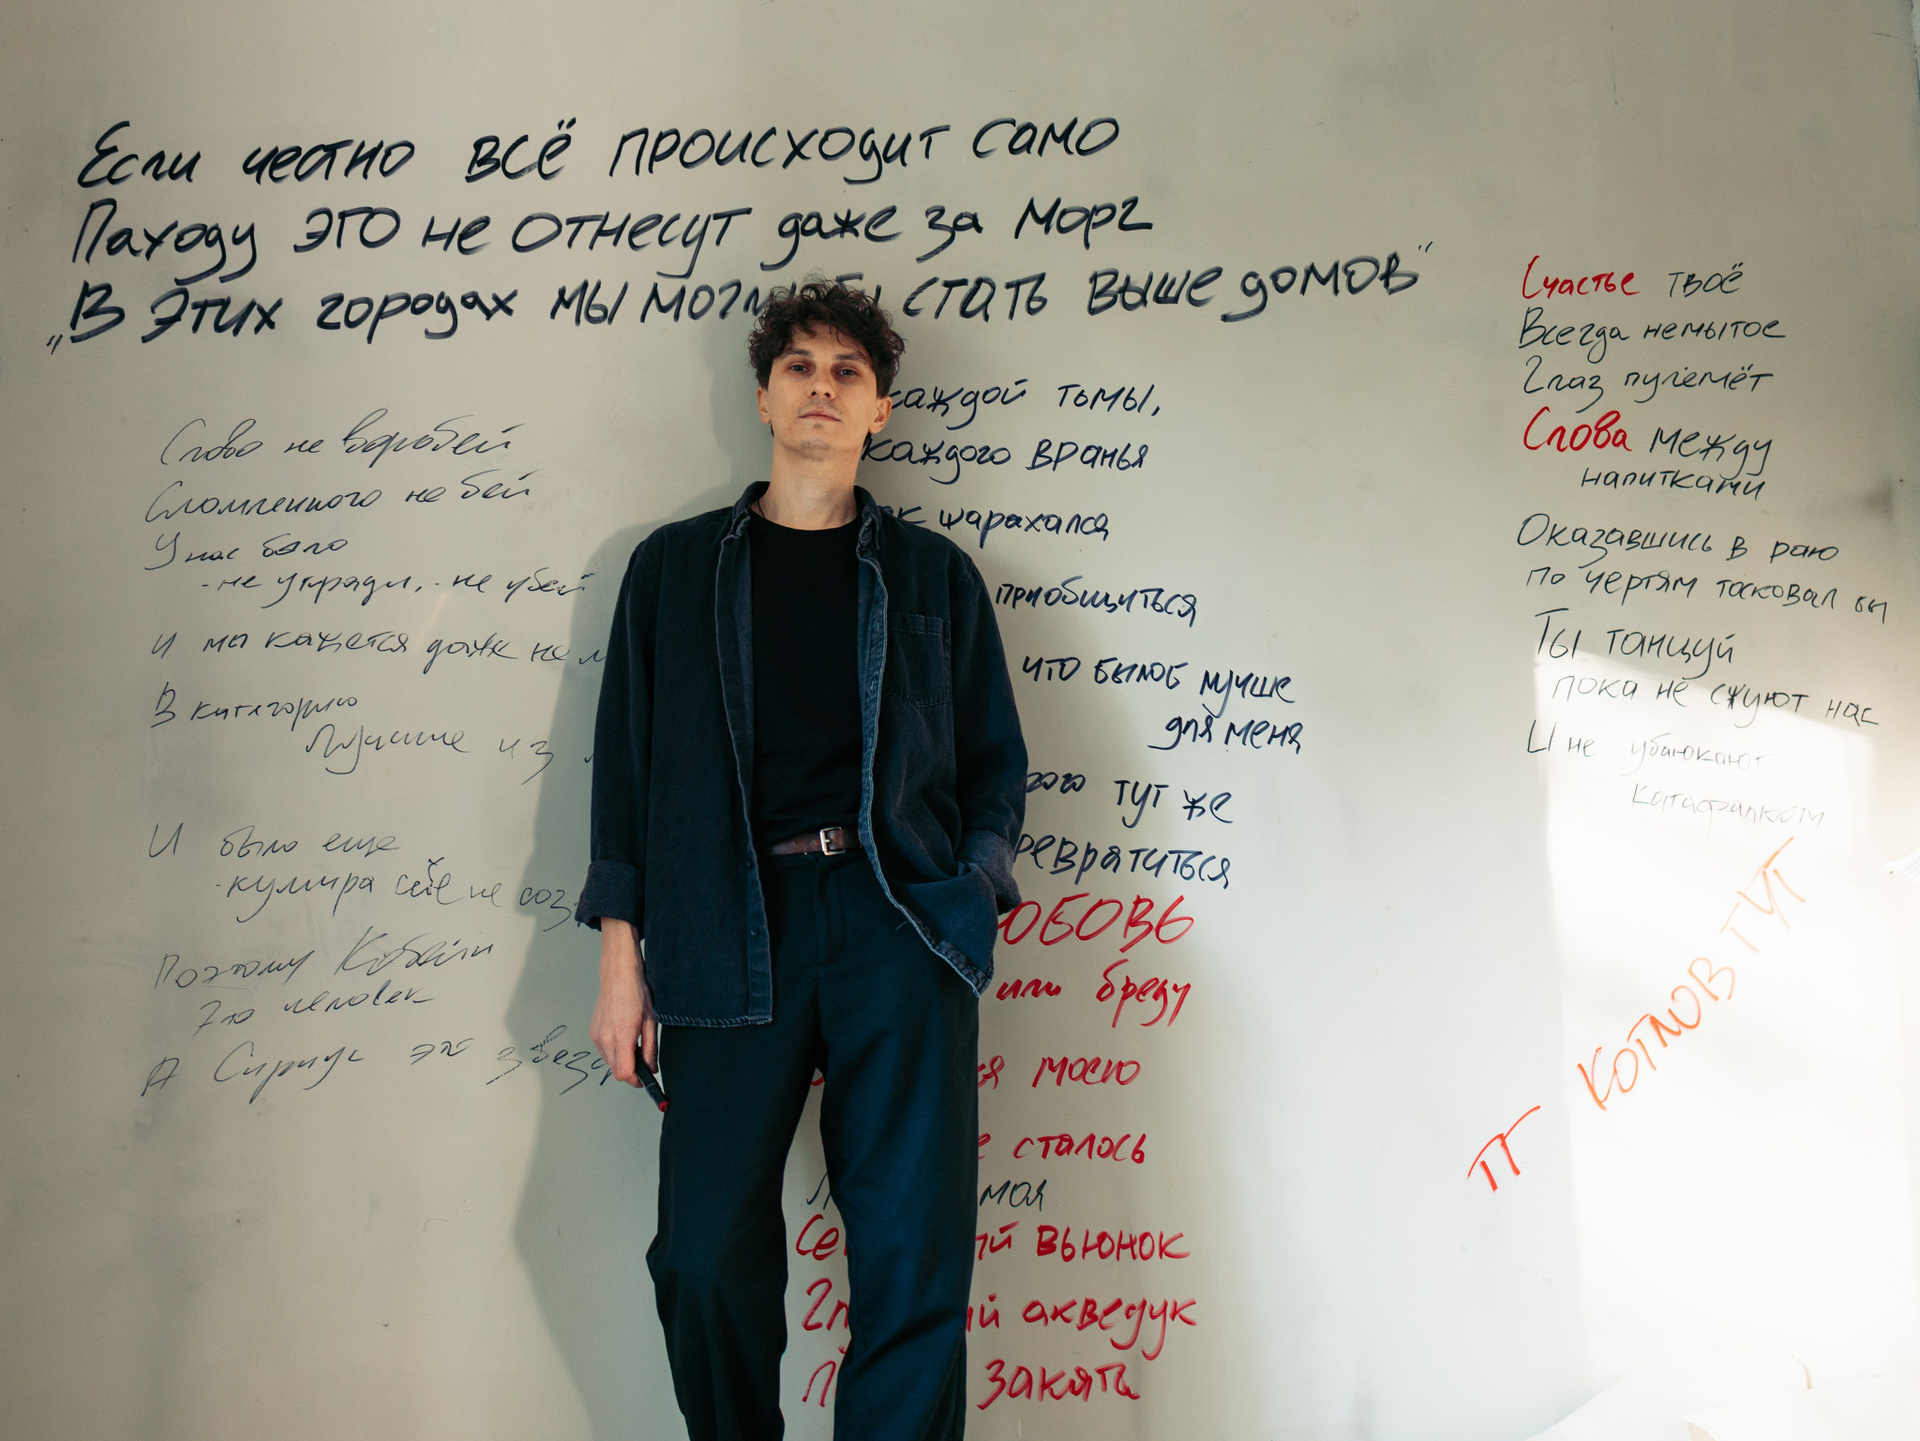 Если честно всё происходит само
Паходу эго не отнесут даже за морг
„В этих городах мы могли бы стать выше домов“
Слово не воробей
Сломленного не бей
У нас было
-не укради, -не убей
и мы кажется даже не
В категорию
Лучшие из
И было еще
-кумира себе не соз
Поэтому Кобейн
Это человек
А Сириус это звезд
каждой тьмы,
каждого вранья
шарахался
приобщиться
что былоб лучше
для меня
тут же
ревратиться
ЮБОВЬ
или бреду
мою
сталось
моя
вьюнок
акведук
закята
Счастье твоё
Всегда немытое
Глаз пулемёт
Слова между
напитками
Оказавшись в раю
по чертям тосковал бы
Ты танцуй
пока не сжуют нас
И не убаюкают
катафалком
ПГ КОТЛОВ ТУТ